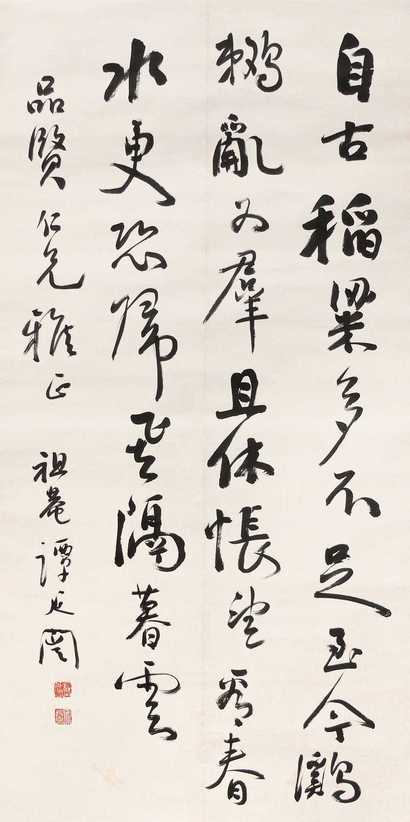 自古稻粱多不足至今鸂
鶒亂為羣且休悵望看春
水更恐歸飛隔暮雲
品賢仁兄雅正 祖菴譚延闓